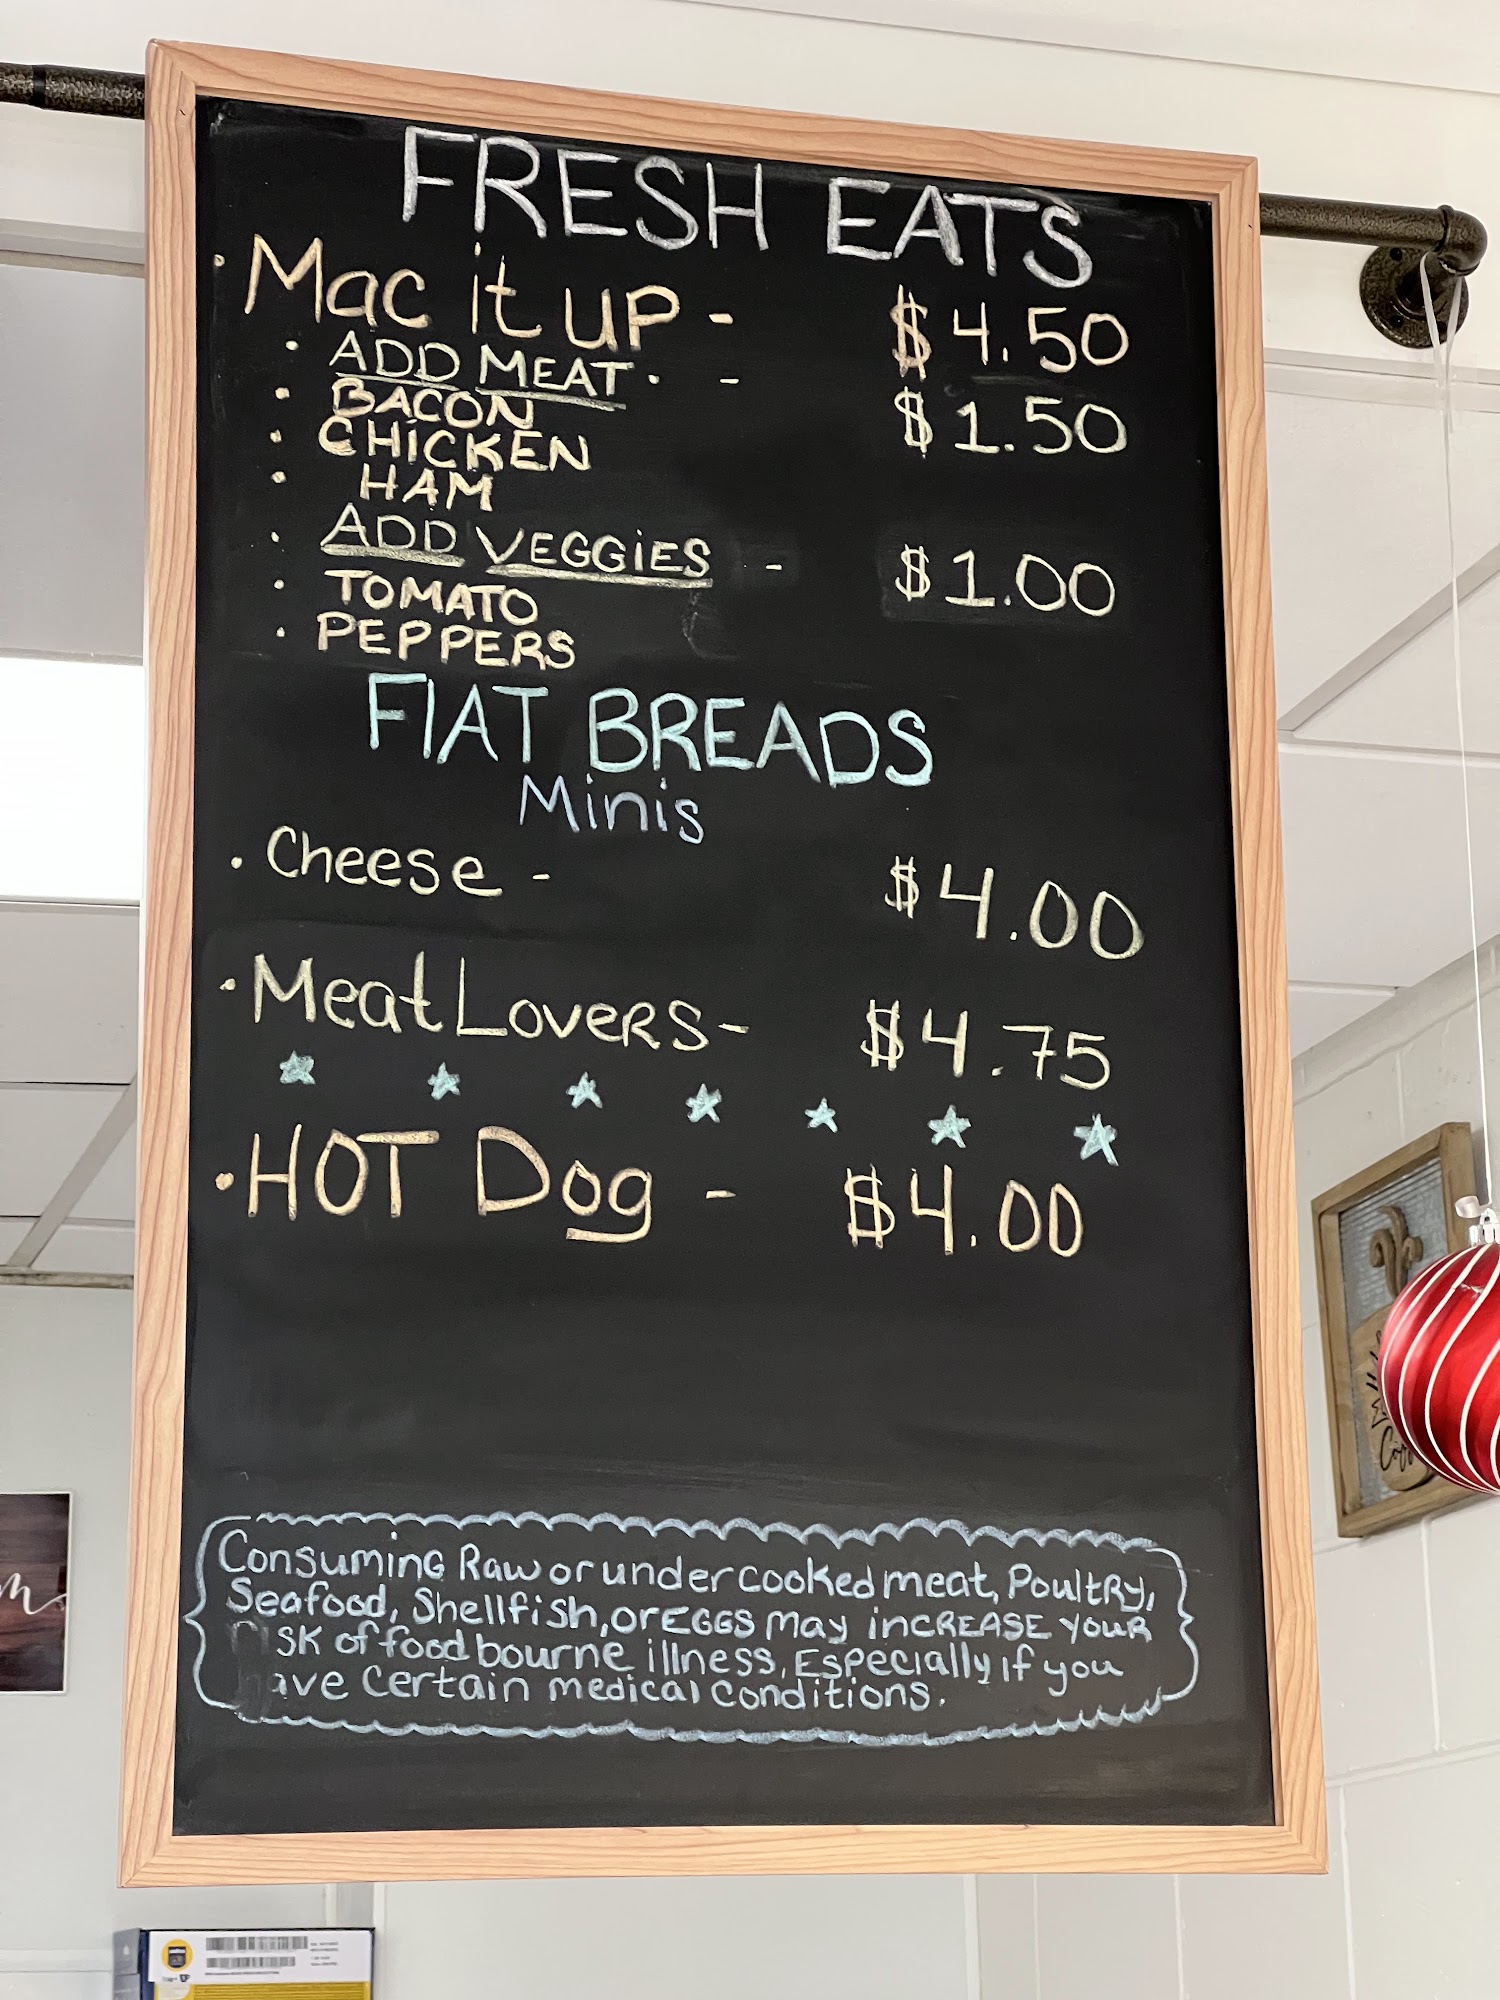 FRESH EATS
• Mac it up - $4.50
• ADD MEAT. - $1.50
• BACON
• CHICKEN
• HAM
• ADD VEGGIES - $1.00
• TOMATO
• PEPPERS
FlAT BREADS
Minis
• Cheese - $4.00
• Meat Lovers - $4.75
• HOT Dog - $4.00
Consuming Raw or undercooked meat, Poultry,
Seafood, Shellfish, or EGGS may increase your
isk of food bourne illness, Especially if you
ave certain medical conditions.